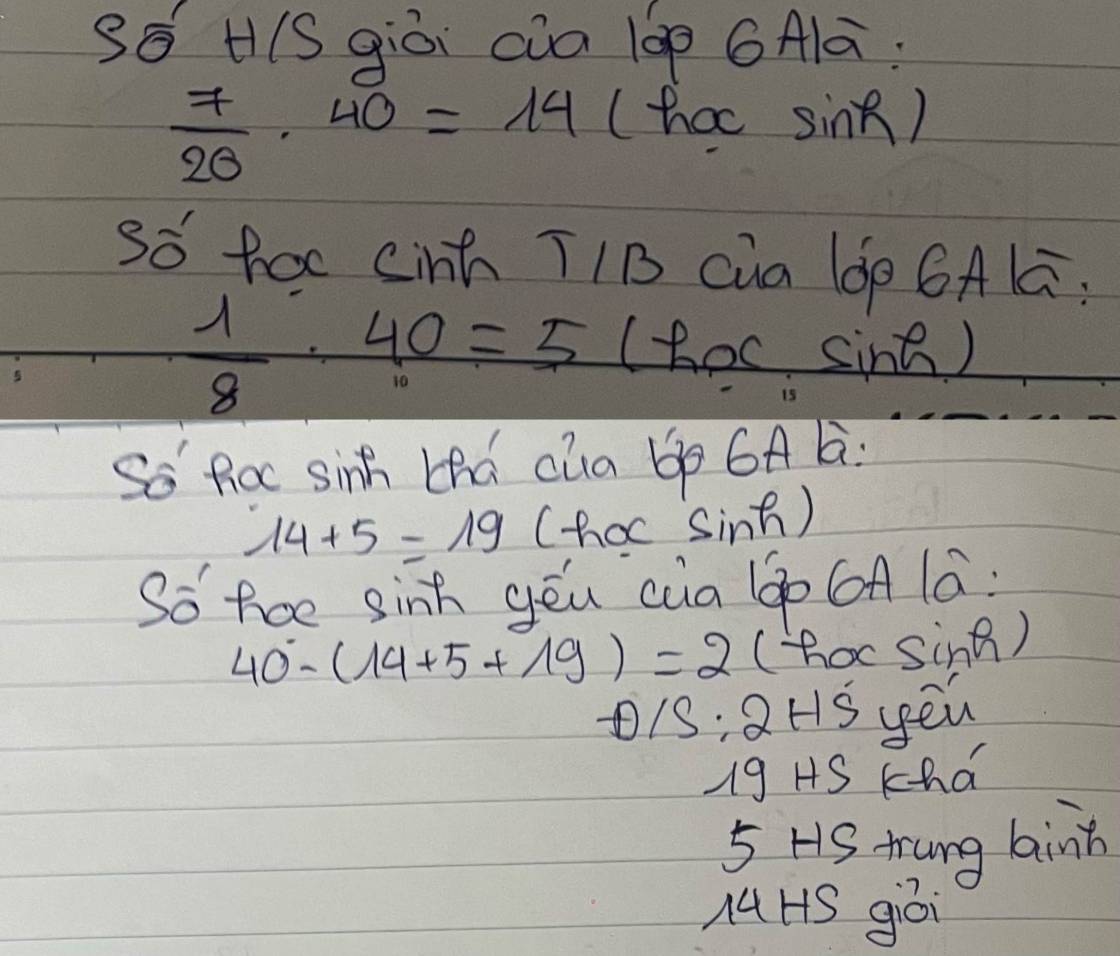 Số H/S giỏi của lớp 6A là:
7/20 . 40 = 14 (học sinh)
Số học sinh T/B của lớp 6A là:
1/8 . 40 = 5 (học sinh)
5 10 15
Số học sinh khá của lớp 6A là:
14+5 = 19 (học sinh)
Số học sinh yếu của lớp 6A là:
40-(14+5+19) = 2 (học sinh)
Đ/S: 2 HS yếu
19 HS khá
5 HS trung bình
14 HS giỏi